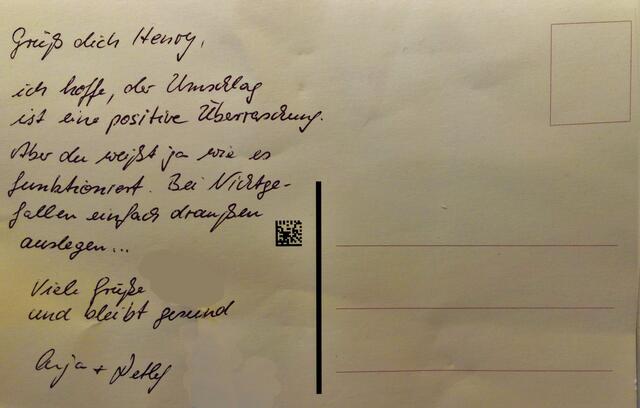 Grüß dich Henry,
ich hoffe, der Umschlag
ist eine positive Überraschung.
Aber du weißt ja wie es
funktioniert. Bei Nichtge-
fallen einfach draußen
auslegen...
Viele Grüße
und bleibt gesund
Anja + Detlef